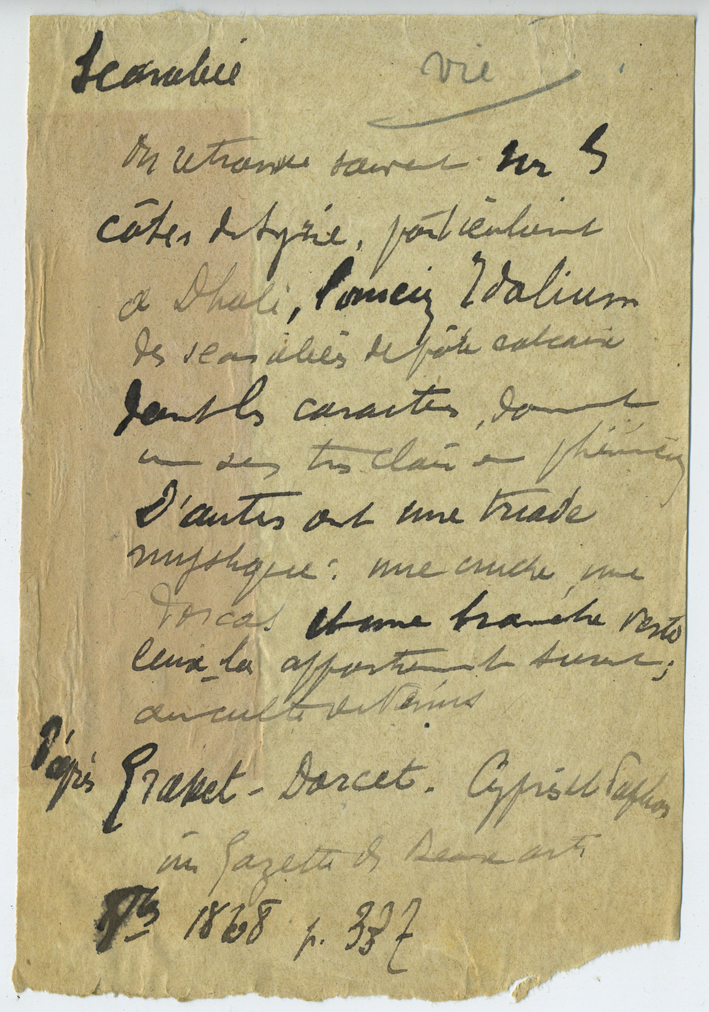 Scarabée vie
On retrouve souvent sur les
côtes de Syrie, particulièrement
à Dhali, l'ancien Idalium
des scarabées de pâte calcaire
dont les caractères, donnent
un sens très clair en phénicien
D'autres ont une triade
mystique : une cruche, une
dorcas et une branche verte
ceux-là appartiennent suivant
au culte de Vénus
D'après Grasset-Dorcet. Cypris et Paphos
in Gazette des Beaux arts
1868 p. 337